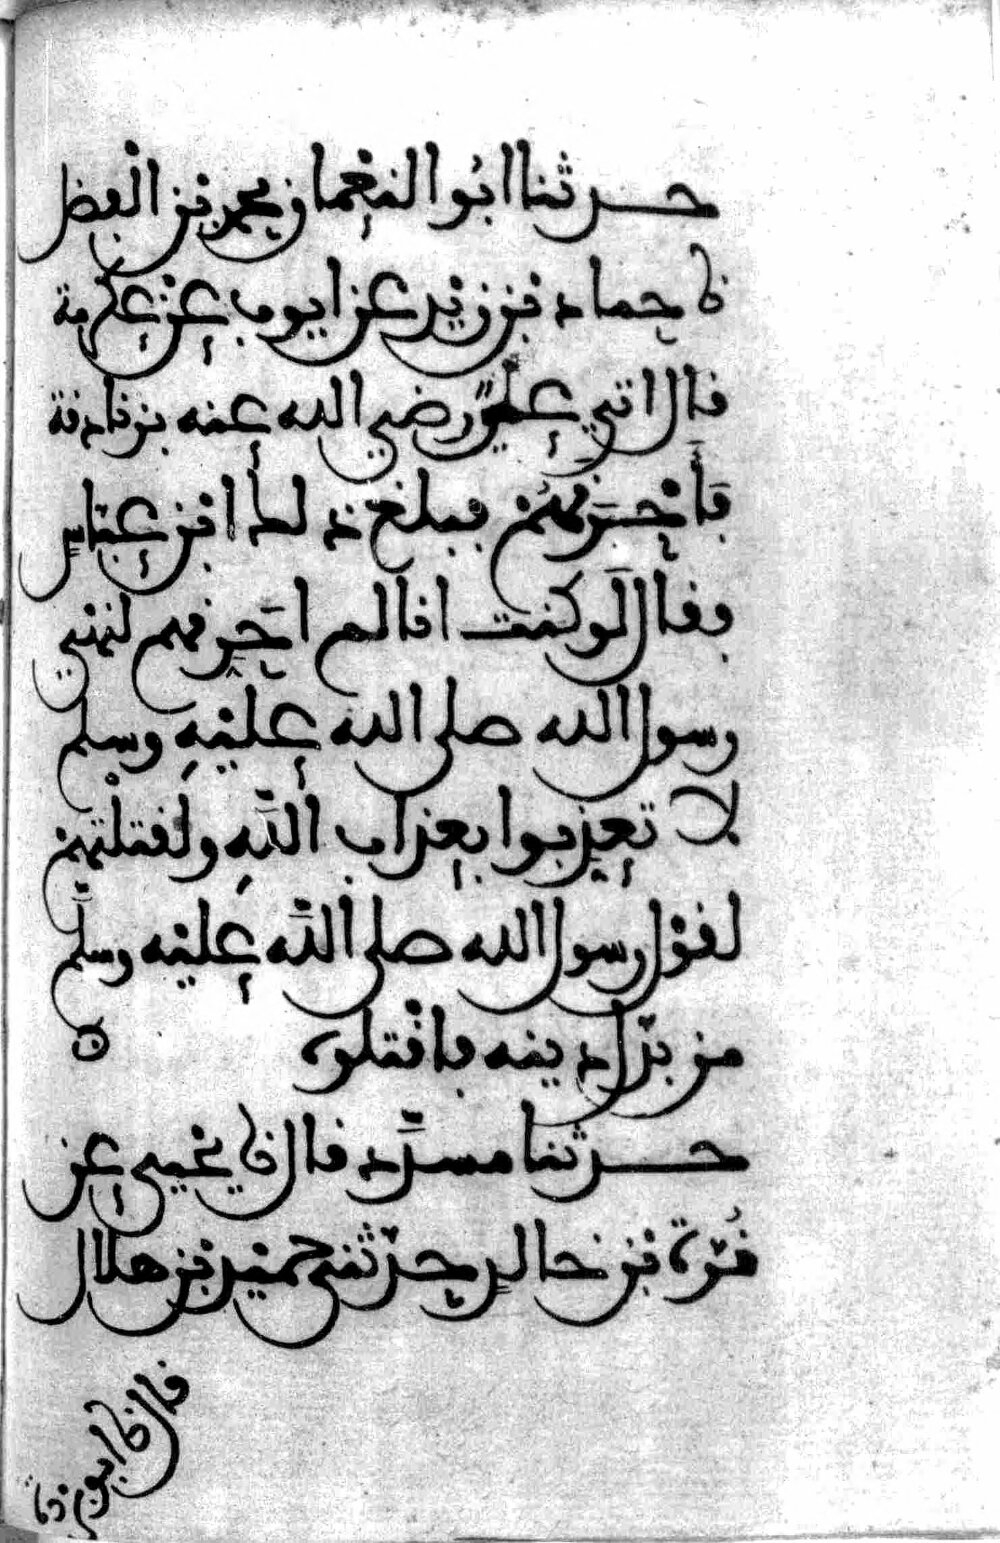 حدثنا ابو النعمان محمد بن الفضل
نا حماد بن زيد عن ايوب عن عكرمة
قال اتي علي رضي الله عنه بزنادقة
فأحرقهم فبلغ ذلك ابن عباس
وقال لو كنت انا لم احرقهم لنهي
رسول الله صلى الله عليه وسلم
لا تعذبوا بعذاب الله ولقتلتهم
لقول رسول الله صلى الله عليه وسلم
من بدل دينه فاقتلوه ه
حدثنا مسدد قال نا يحيى عن
قرة بن خالد حدثني حميد بن هلال
قال نا ابو بردة